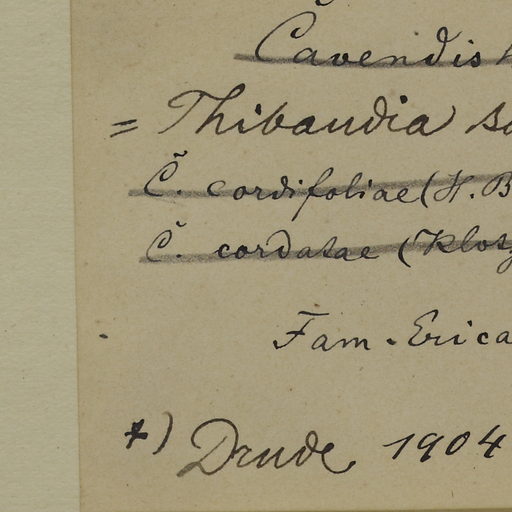 Cavendis
= Thibaudia
C. cordifoliae (H. B
C. cordatae (Klotz
Fam. Erica
*) Drude 1904